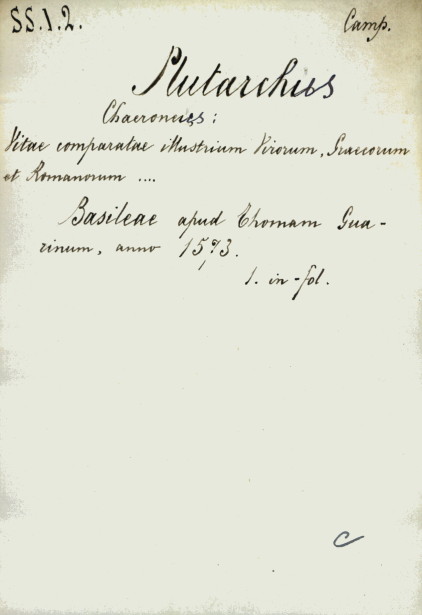 SS.1.2. Camp.
Plutarchus
Chaeroneus;
Vitae comparatae illustrium Virorum, Graecorum
et Romanorum ....
Basileae apud Thomam Gua-
rinum, anno 1573.
1. in-fol.
C